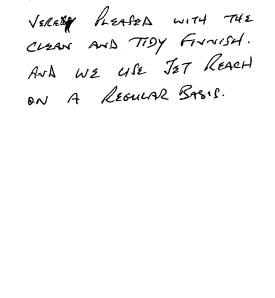 VERY PLEASED WITH THE
CLEAN AND TIDY FINNISH.
AND WE USE JET REACH
ON A REGULAR BASIS.